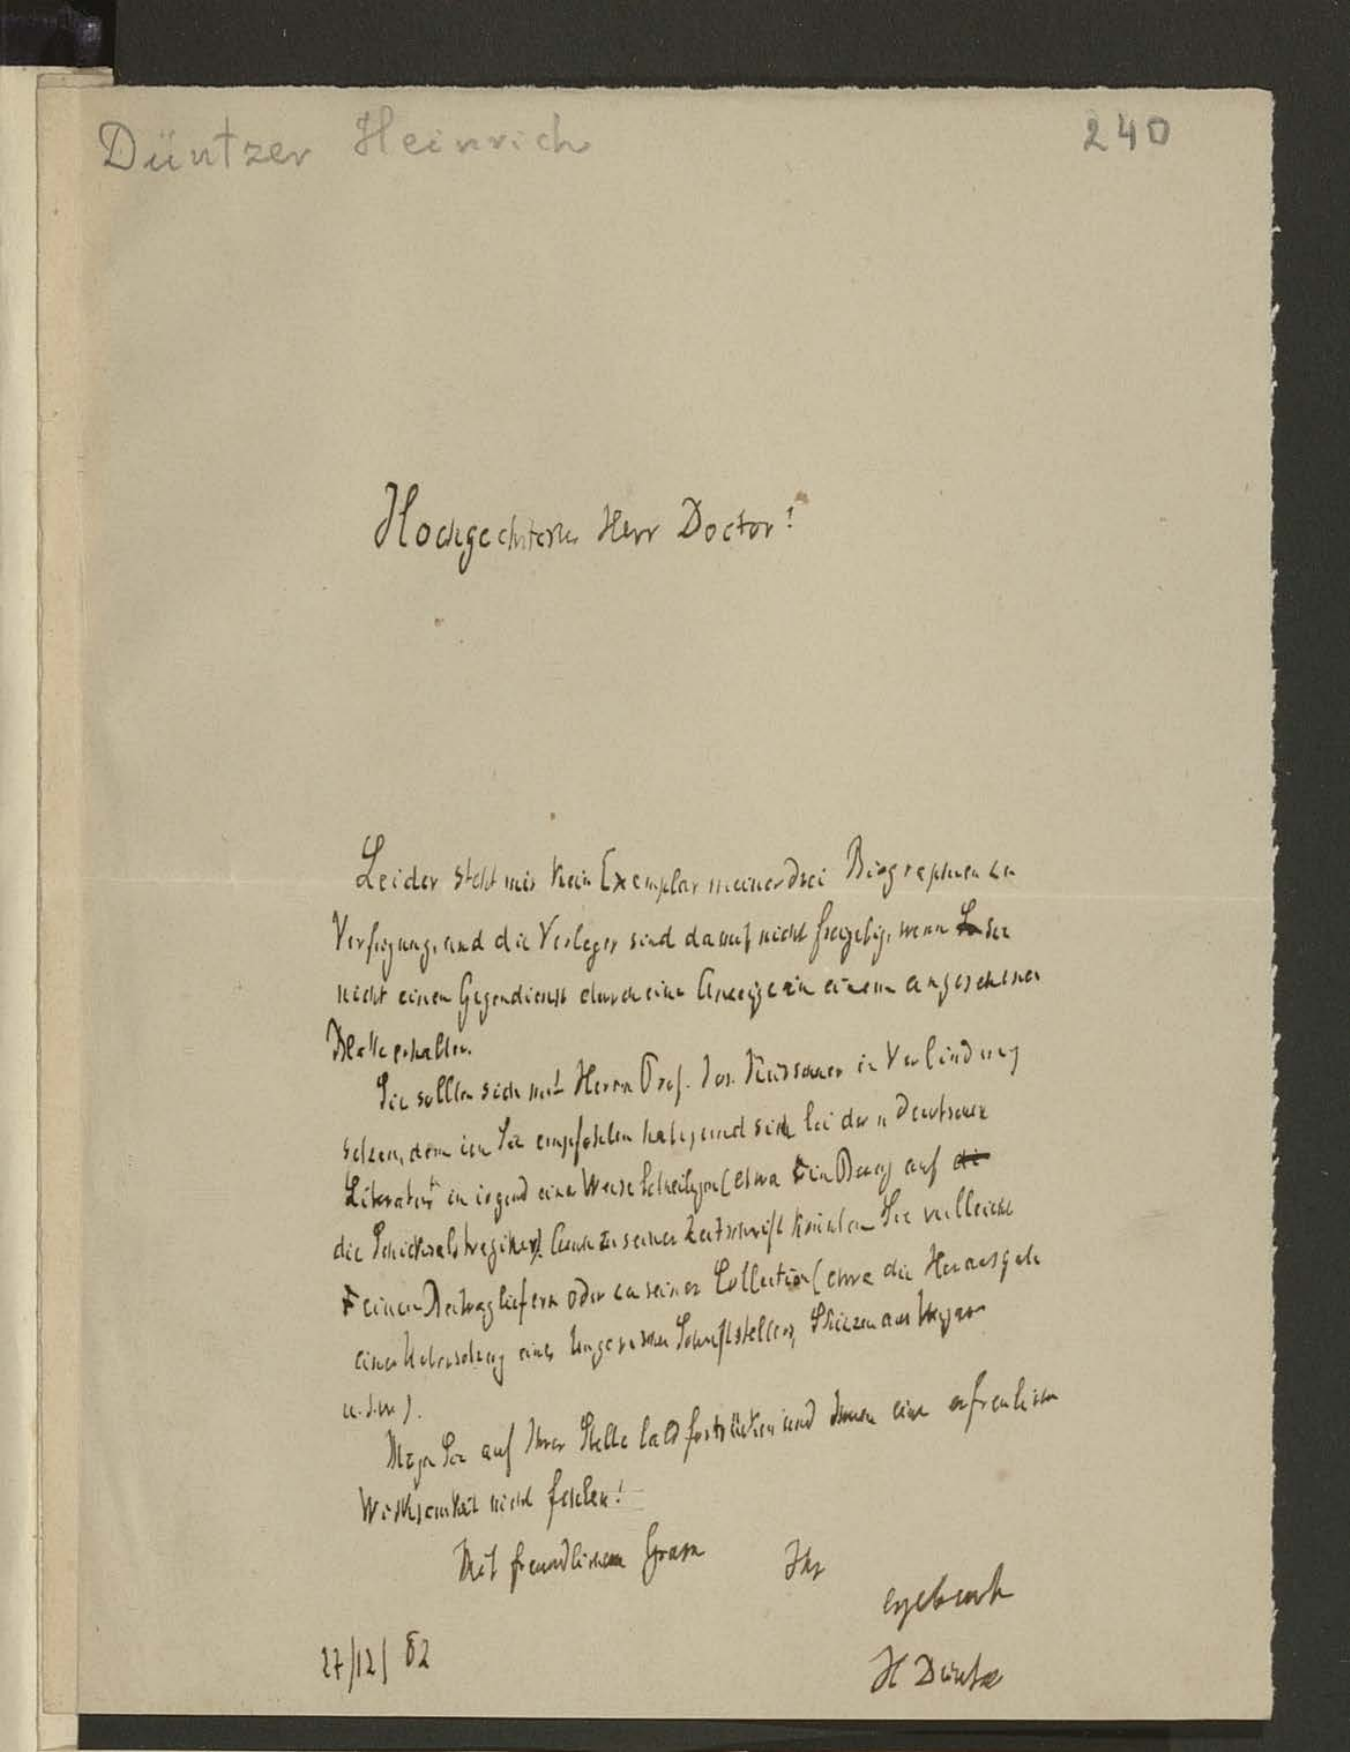 Düntzer Heinrich
240
Hochgeehrtester Herr Doctor!
Leider steht mir kein Exemplar meiner drei Biographien zur
Verfügung, und die Verleger sind darauf nicht freigebig, wenn sie
nicht einen Gegendienst durch eine Anzeige in einem angesehenen
Blatte erhalten.
Sie sollten sich mit Herrn Prof. Jos. Kürschner in Verbindung
setzen, dem ich Sie empfohlen habe, und sich bei der „Deutschen
Literatur" in irgend einer Weise betheiligen (etwa ein Band auf die
die Schicksalstragiker). Auch zu seiner Zeitschrift könnten Sie vielleicht
einen Beitrag liefern oder zu seiner Collection (etwa die Herausgabe
einer Uebersetzung eines Ungarischen Schriftstellers, Skizzen aus Ungarn
u.s.w).
Mögen Sie auf Ihrer Stelle bald fortrücken und Ihnen eine erfreuliche
Wirksamkeit nicht fehlen!
Mit freundlichem Gruss Ihr
ergebenster
H Düntzer
27/12/ 82